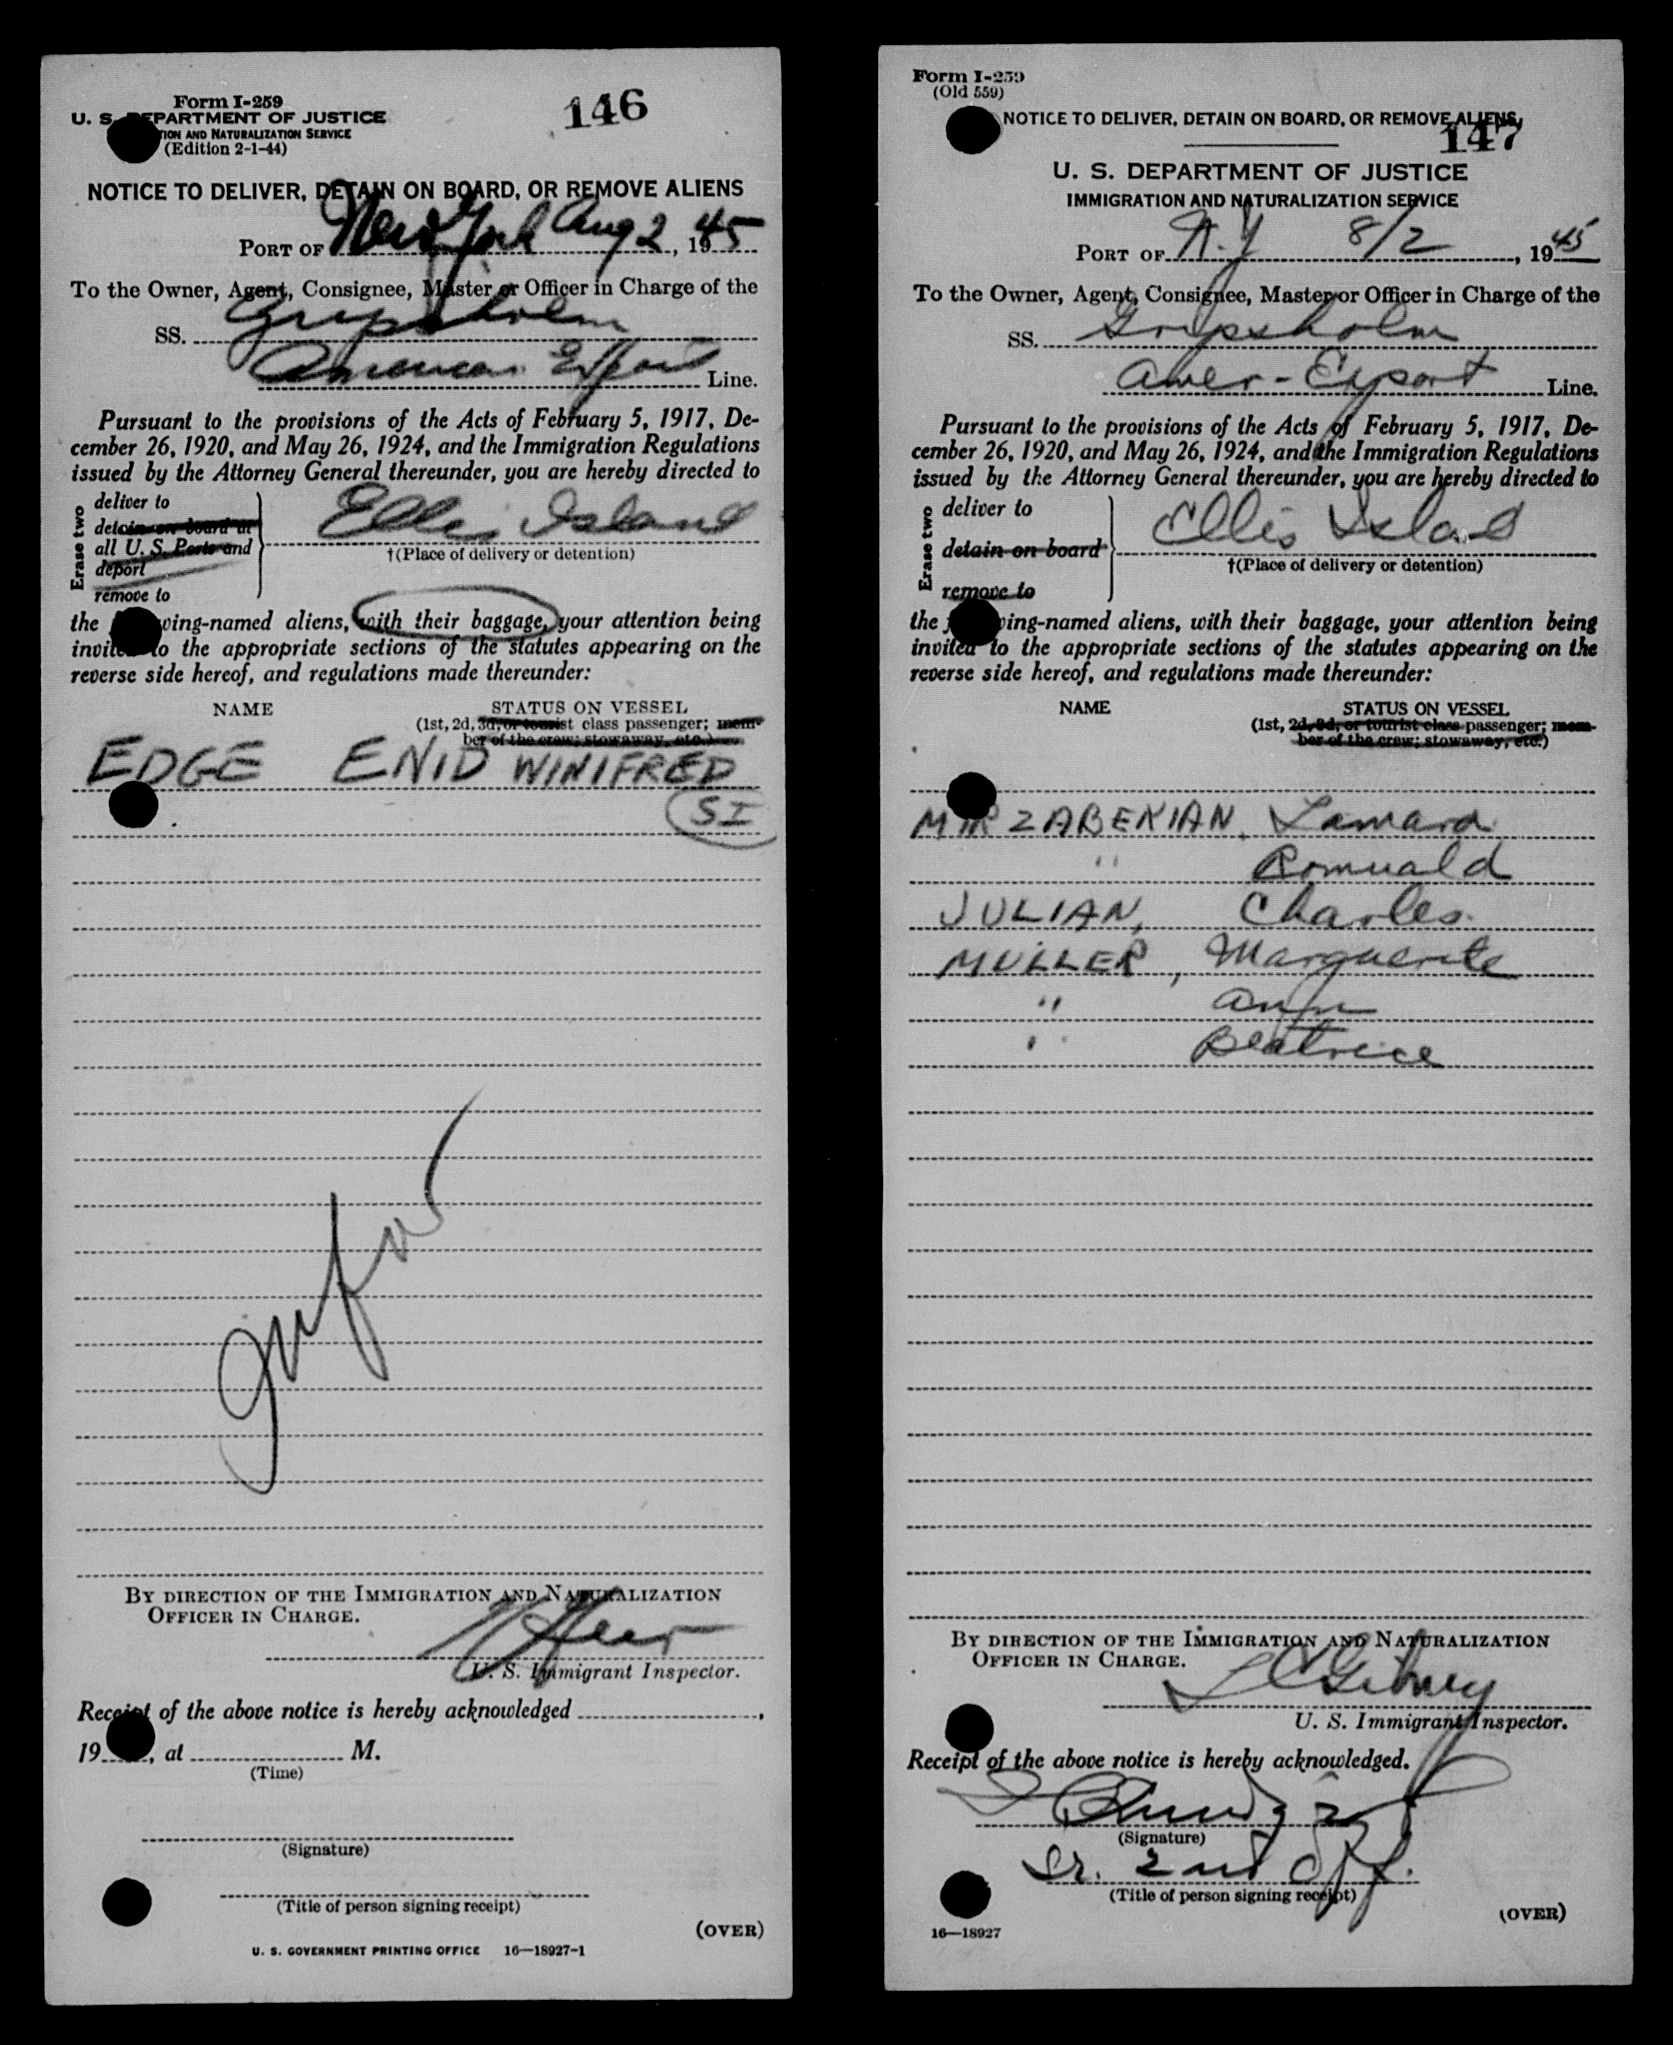 Form I-259
U. S. DEPARTMENT OF JUSTICE
TION AND NATURALIZATION SERVICE
(Edition 2-1-44)
146
NOTICE TO DELIVER, DETAIN ON BOARD, OR REMOVE ALIENS
PORT OF New York Aug 2, 1945
To the Owner, Agent, Consignee, Master or Officer in Charge of the
SS. Gripsholm
American Export Line.
Pursuant to the provisions of the Acts of February 5, 1917, De-
cember 26, 1920, and May 26, 1924, and the Immigration Regulations
issued by the Attorney General thereunder, you are hereby directed to
Erase two
deliver to
detain on board at
all U. S. Ports and
deport
remove to
Ellis Island
†(Place of delivery or detention)
the following-named aliens, with their baggage, your attention being
invited to the appropriate sections of the statutes appearing on the
reverse side hereof, and regulations made thereunder:
NAME STATUS ON VESSEL
(1st, 2d, 3d, or tourist class passenger; mem-
ber of the crew; stowaway, etc.)
EDGE ENID WINIFRED
SI
BY DIRECTION OF THE IMMIGRATION AND NATURALIZATION
OFFICER IN CHARGE.
U. S. Immigrant Inspector.
Receipt of the above notice is hereby acknowledged
19, at M.
(Time)
(Signature)
(Title of person signing receipt)
(OVER)
U. S. GOVERNMENT PRINTING OFFICE 16—18927-1
Form I-259
(Old 559)
NOTICE TO DELIVER, DETAIN ON BOARD, OR REMOVE ALIENS,
147
U. S. DEPARTMENT OF JUSTICE
IMMIGRATION AND NATURALIZATION SERVICE
PORT OF N.Y 8/2, 1945
To the Owner, Agent, Consignee, Master or Officer in Charge of the
SS. Gripsholm
Amer-Export Line.
Pursuant to the provisions of the Acts of February 5, 1917, De-
cember 26, 1920, and May 26, 1924, and the Immigration Regulations
issued by the Attorney General thereunder, you are hereby directed to
Erase two
deliver to
detain on board
remove to
Ellis Island
†(Place of delivery or detention)
the following-named aliens, with their baggage, your attention being
invited to the appropriate sections of the statutes appearing on the
reverse side hereof, and regulations made thereunder:
NAME STATUS ON VESSEL
(1st, 2d, 3d, or tourist class passenger; mem-
ber of the crew; stowaway, etc.)
MIRZABEKIAN, Lamara
" Romuald
JULIAN, Charles
MULLER, Marguerite
" Ann
" Beatrice
BY DIRECTION OF THE IMMIGRATION AND NATURALIZATION
OFFICER IN CHARGE.
Gibney
U. S. Immigrant Inspector.
Receipt of the above notice is hereby acknowledged.
(Signature)
Sr. 2nd Off.
(Title of person signing receipt)
(OVER)
16—18927